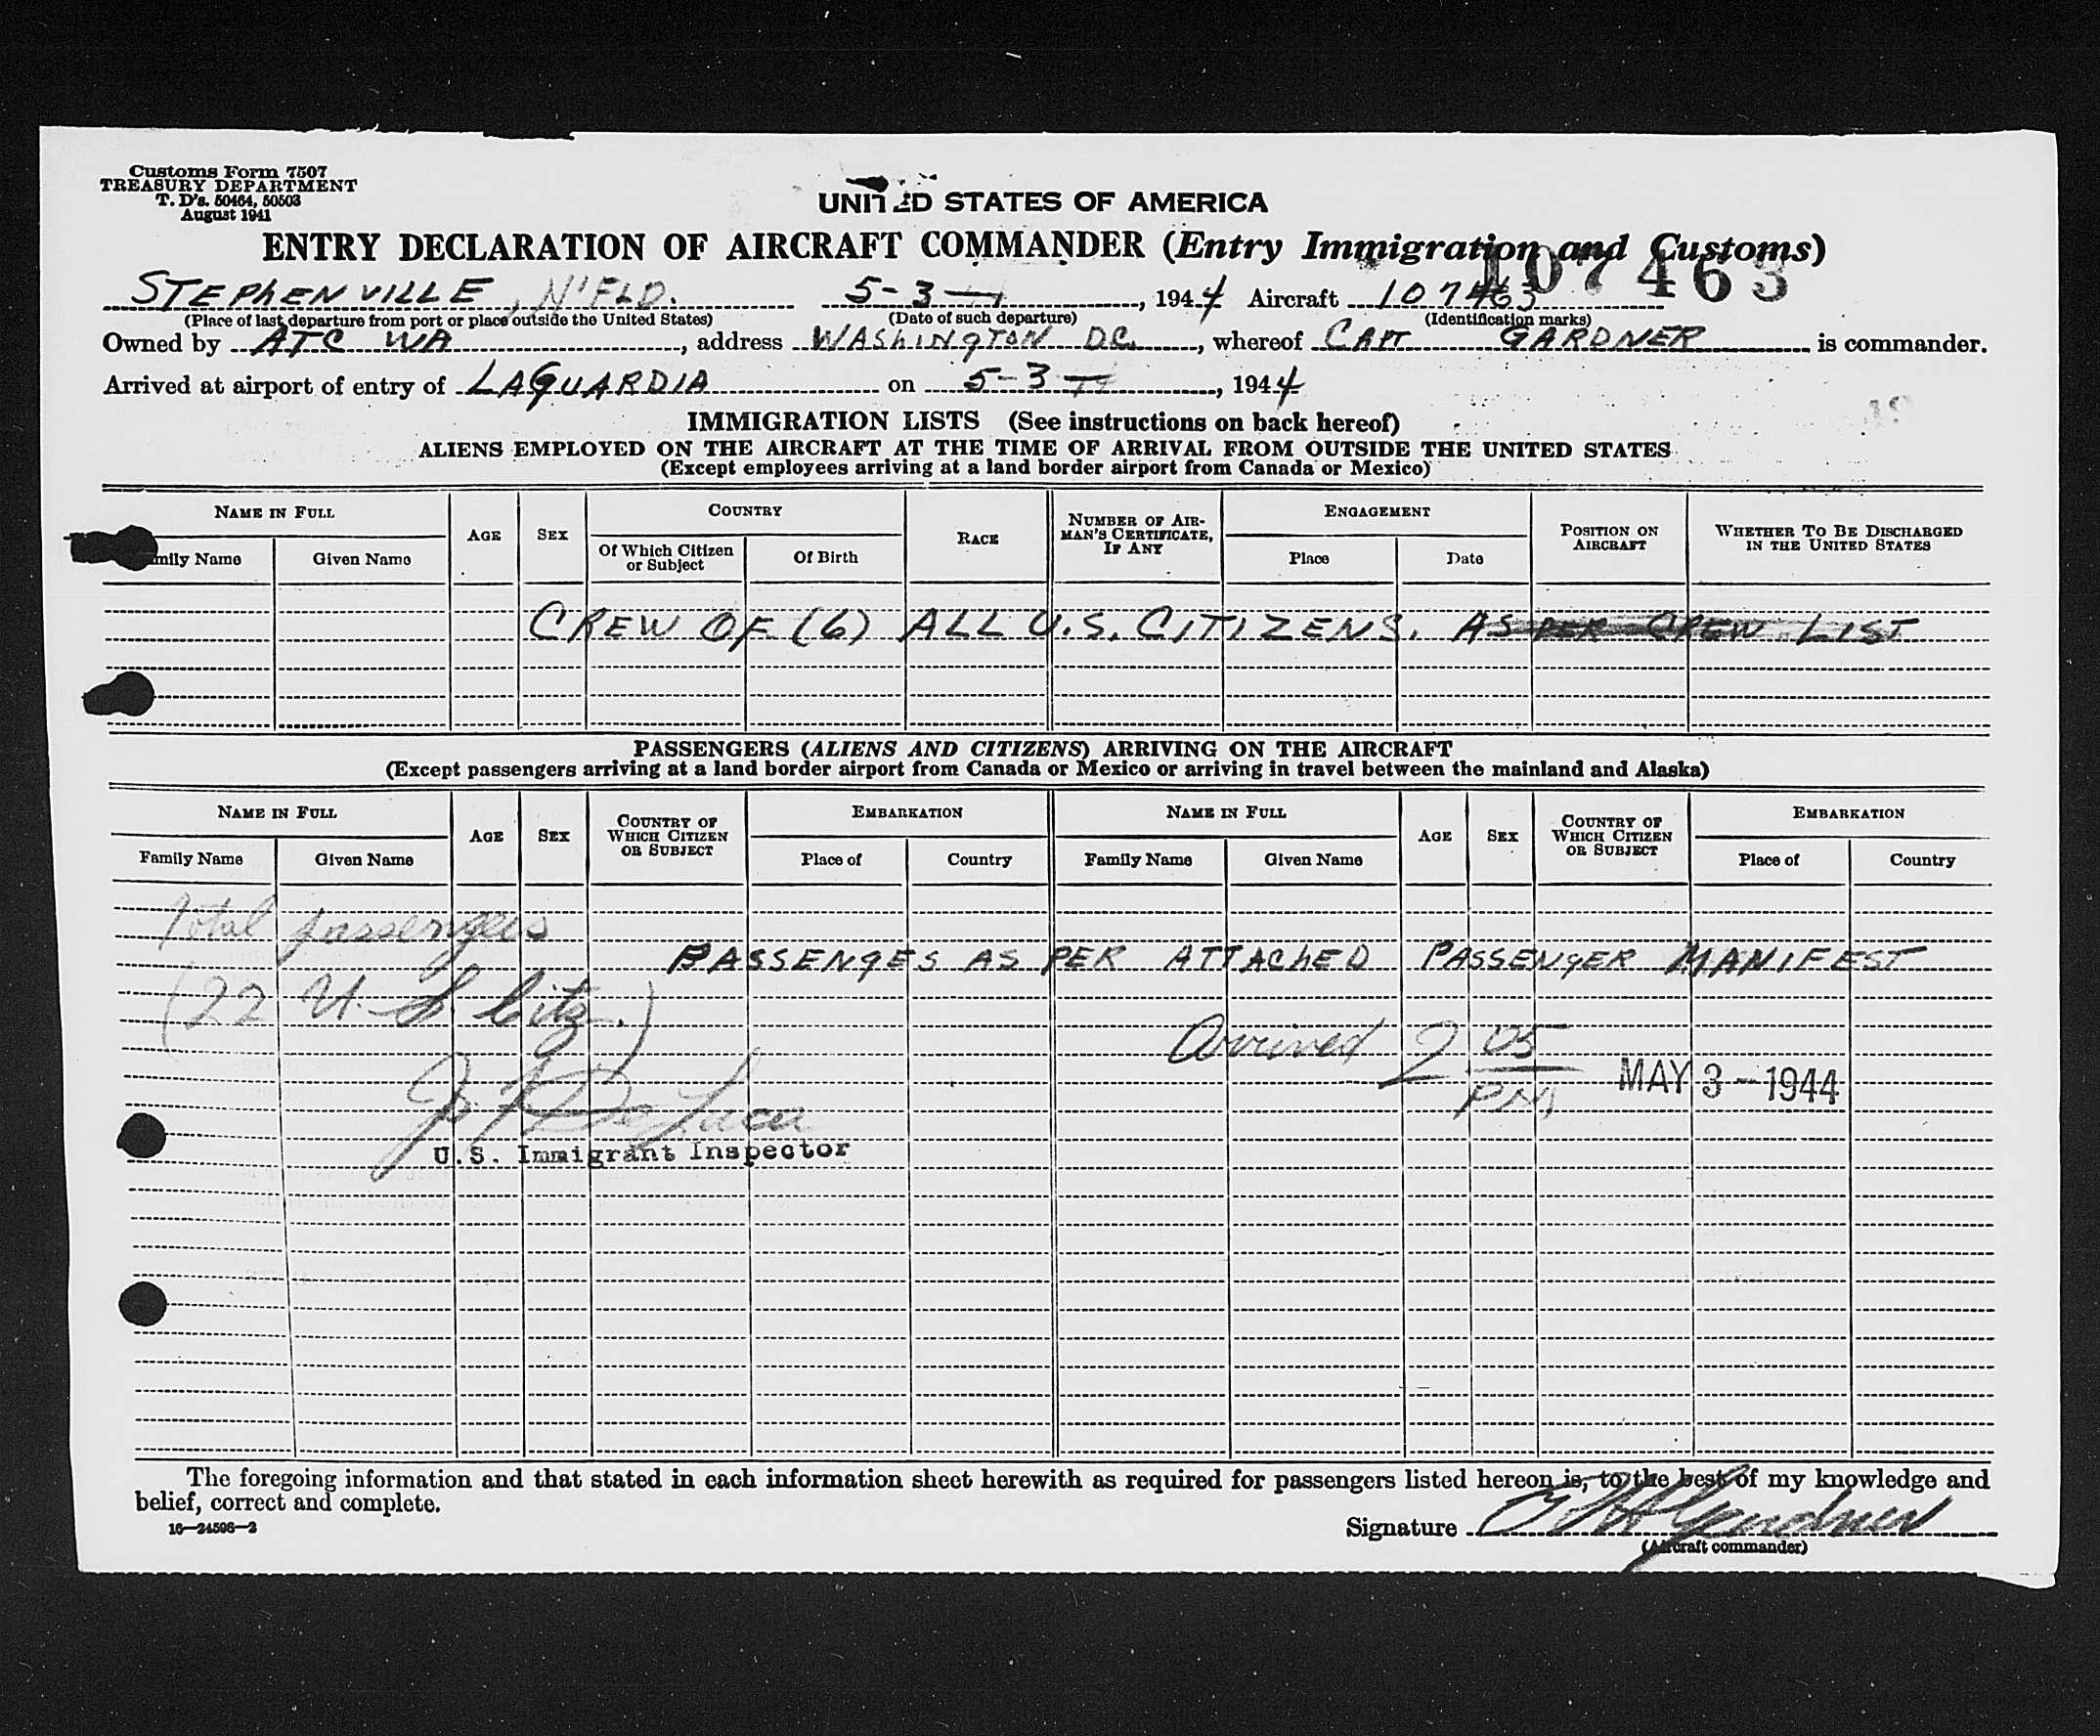 Customs Form 7507
TREASURY DEPARTMENT
T. D's. 50464, 50503
August 1941
UNITED STATES OF AMERICA
ENTRY DECLARATION OF AIRCRAFT COMMANDER (Entry Immigration and Customs)
107463
STEPHENVILLE, N'FLD. 5-3-, 1944 Aircraft 107463
(Place of last departure from port or place outside the United States) (Date of such departure) (Identification marks)
Owned by ATC WA, address WASHINGTON DC, whereof CAPT GARDNER is commander.
Arrived at airport of entry of LAGUARDIA on 5-3-, 1944
IMMIGRATION LISTS (See instructions on back hereof)
ALIENS EMPLOYED ON THE AIRCRAFT AT THE TIME OF ARRIVAL FROM OUTSIDE THE UNITED STATES
(Except employees arriving at a land border airport from Canada or Mexico)
NAME IN FULL AGE SEX COUNTRY RACE NUMBER OF AIRMAN'S CERTIFICATE, IF ANY ENGAGEMENT POSITION ON AIRCRAFT WHETHER TO BE DISCHARGED IN THE UNITED STATES
mily Name Given Name Of Which Citizen or Subject Of Birth Place Date
CREW OF (6) ALL U.S. CITIZENS. AS PER CREW LIST
PASSENGERS (ALIENS AND CITIZENS) ARRIVING ON THE AIRCRAFT
(Except passengers arriving at a land border airport from Canada or Mexico or arriving in travel between the mainland and Alaska)
NAME IN FULL AGE SEX COUNTRY OF WHICH CITIZEN OR SUBJECT EMBARKATION NAME IN FULL AGE SEX COUNTRY OF WHICH CITIZEN OR SUBJECT EMBARKATION
Family Name Given Name Place of Country Family Name Given Name Place of Country
Total passengers
PASSENGES AS PER ATTACHED PASSENGER MANIFEST
(22 U.S. Citz.)
Arrived 2 05 PM MAY 3-1944
J. De Luca
U.S. Immigrant Inspector
The foregoing information and that stated in each information sheet herewith as required for passengers listed hereon is, to the best of my knowledge and
belief, correct and complete.
16—24598-2
Signature Gardner
(Aircraft commander)